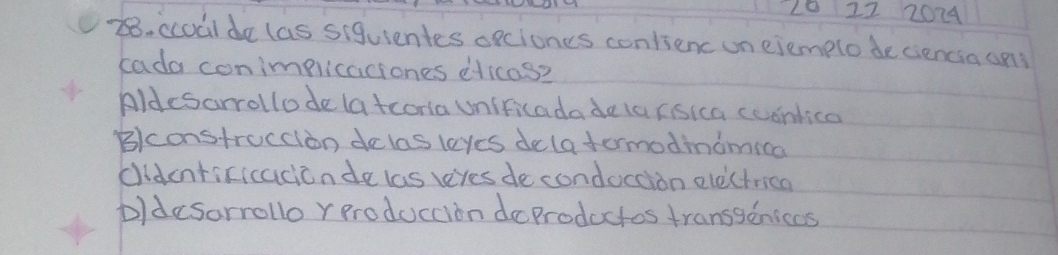 20 22 2024
28. ¿cuál de las siguientes opciones contiene un ejemplo de ciencia apli
cada con implicaciones éticas?
A) desarrollo de la teoria unificada de la física cuántica
B) construcción de las leyes de la termodinámica
C) identificación de las leyes de conducción eléctrica
D) desarrollo y producción de productos transgénicos